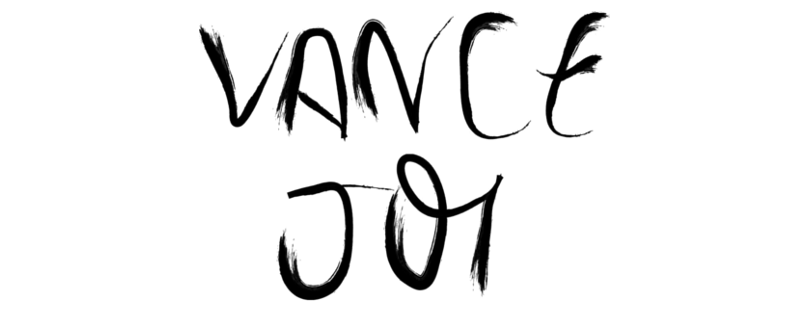 VANCE
JOY